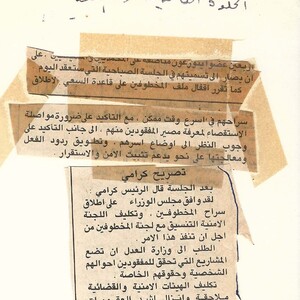 على
أن يصار الى تسميتهم في الجلسة الصباحية التي ستعقد اليوم
كما تقرر اقفال ملف المخطوفين على قاعدة السعي لاطلاق
سراحهم في اسرع وقت ممكن ، مع التأكيد على ضرورة مواصلة
الاستقصاء لمعرفة مصير المفقودين منهم ، الى جانب التأكيد على
وجوب النظر الى اوضاع اسرهم ، وتطويق ردود الفعل
ومعالجتها على نحو يدعم تثبيت الامن والاستقرار
تصريح كرامي
بعد الجلسة قال الرئيس كرامي
لقد وافق مجلس الوزراء على اطلاق
سراح المخطوفين ، وتكليف اللجنة
الامنية التنسيق مع لجنة المخطوفين من
اجل ان تنفذ هذا الامر .
الطلب الى وزارة العدل ان تضع
المشاريع التي تحقق للمفقودين احوالهم
الشخصية وحقوقهم الخاصة .
تكليف الهيئات الامنية والقضائية